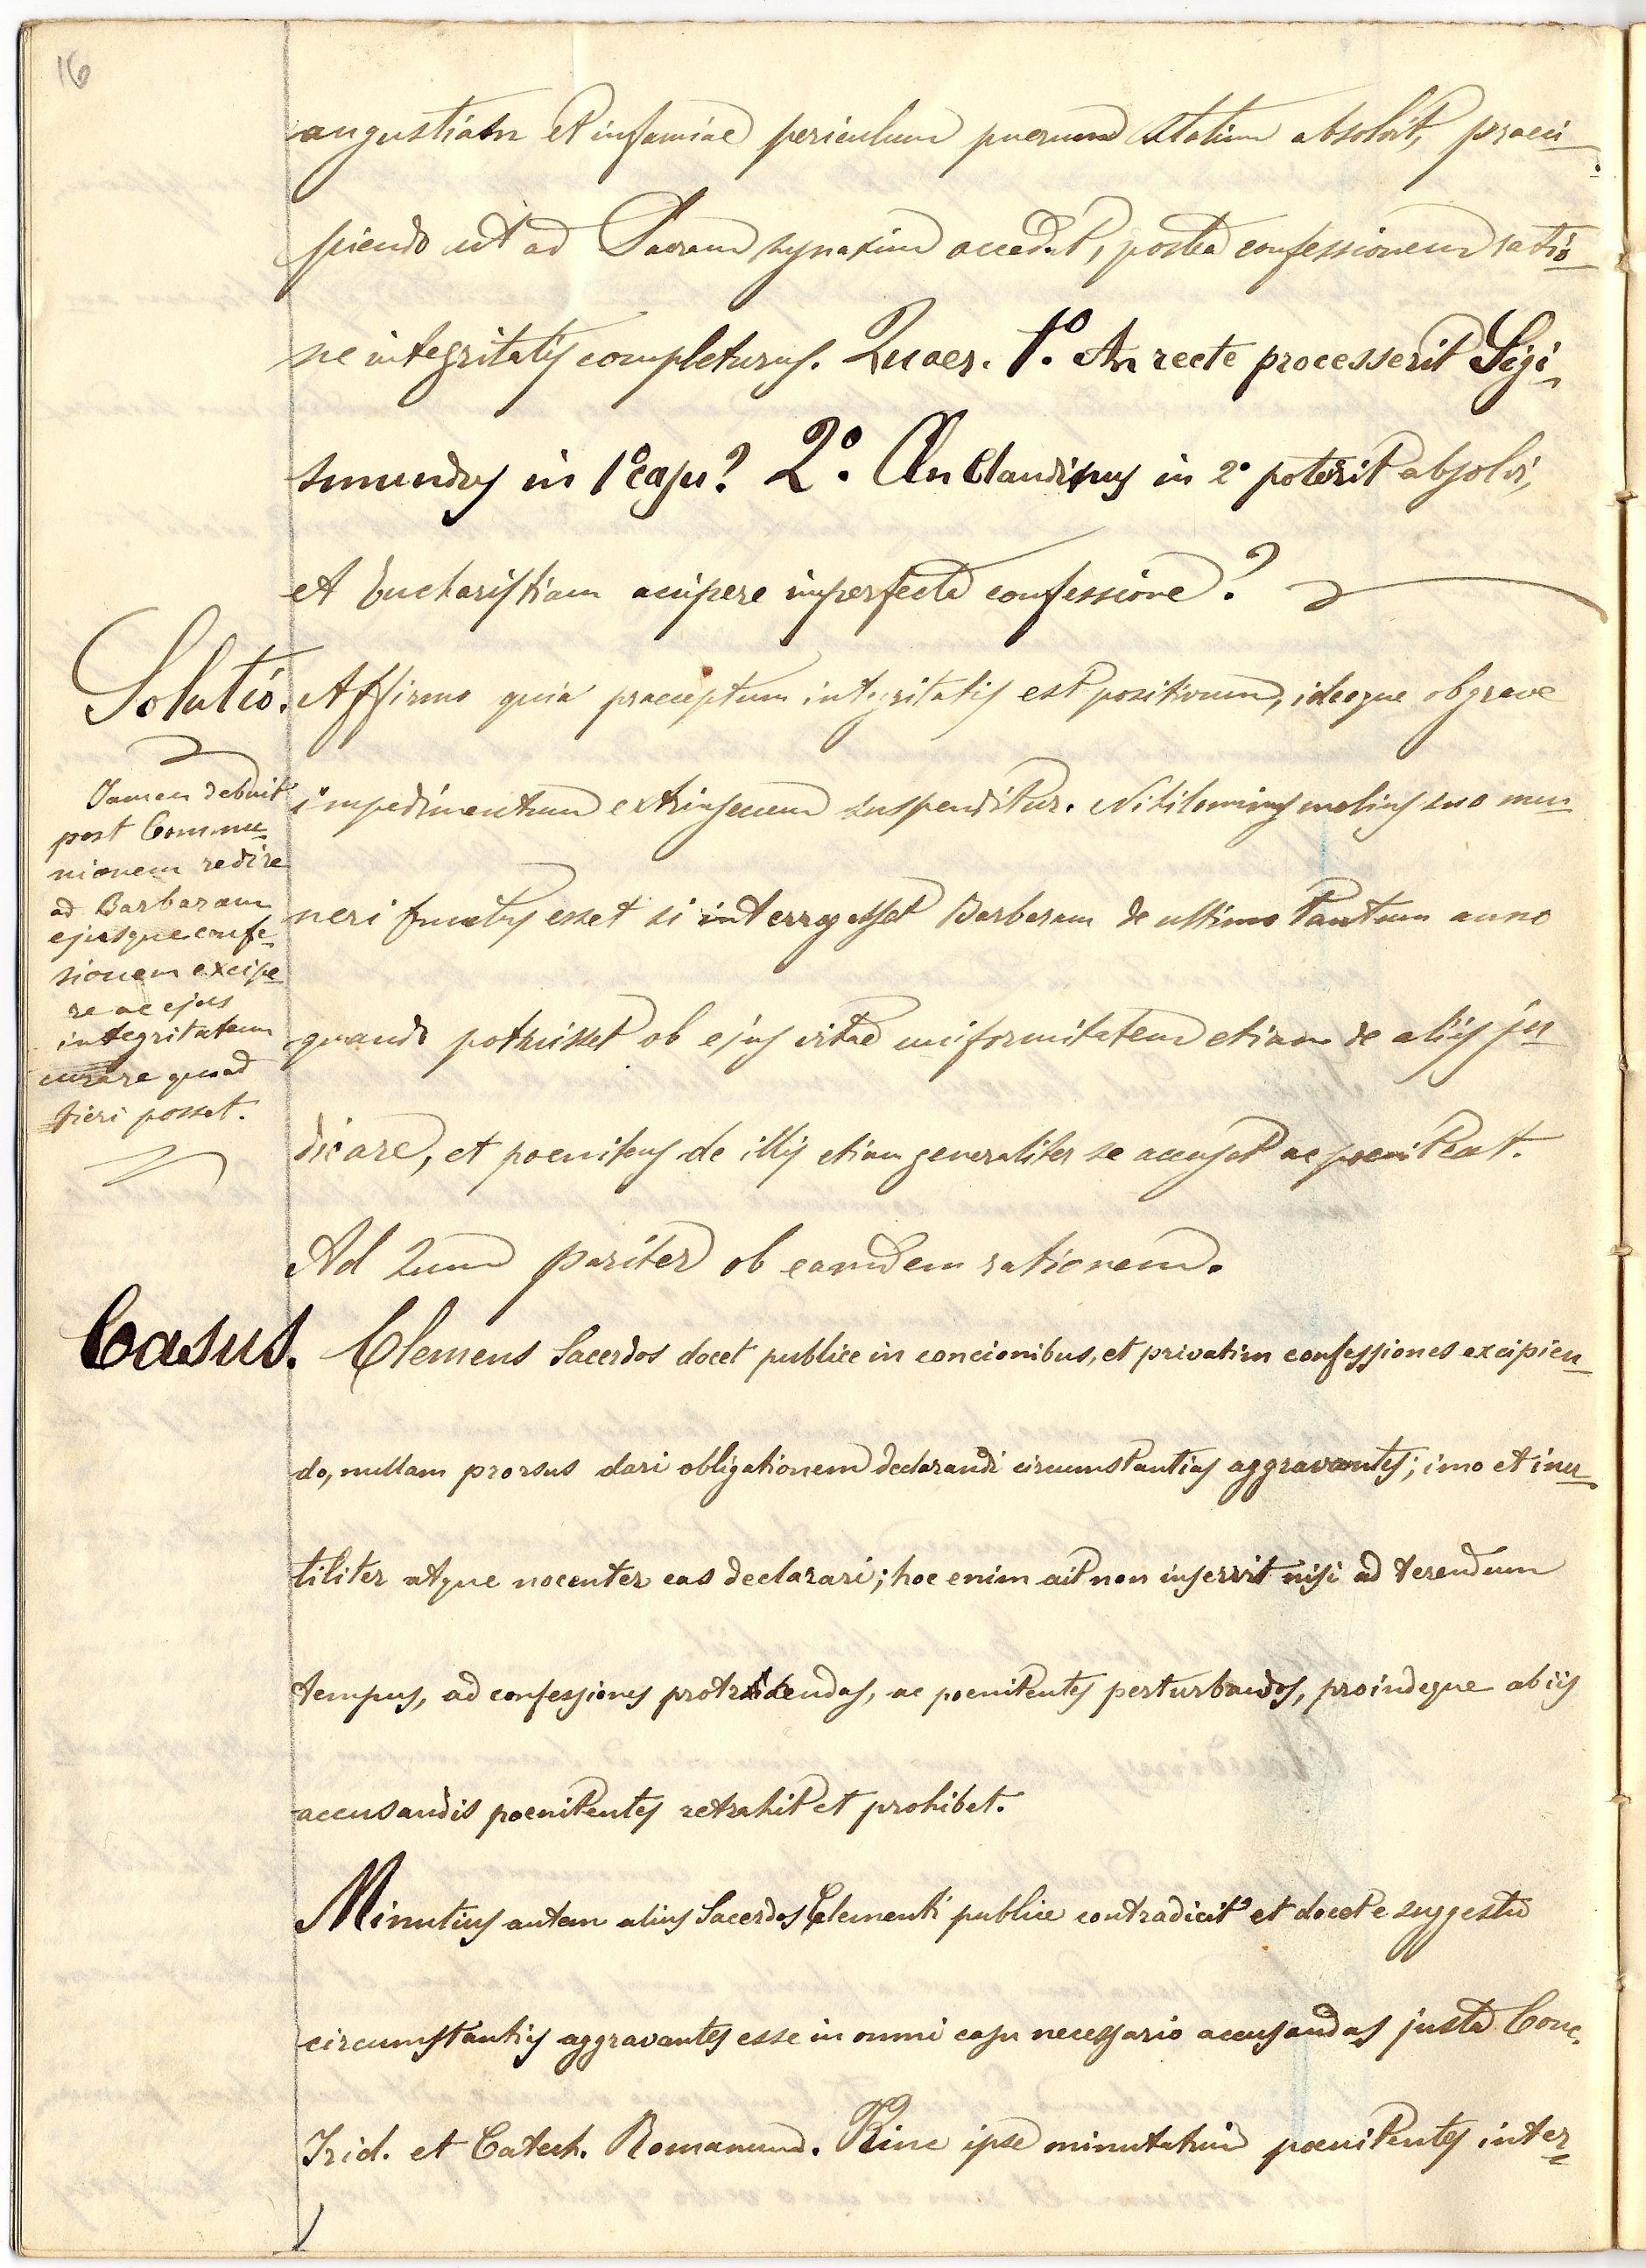 16
angustiam et infamiae periculum puerum statim absolvit, praeci-
piendo ut ad Sacram synaxim accedat, postea confessionem ratio-
ne integritatis completurus. Quaer. 1.º An recte processerit Sigi-
smundus in 1º casu? 2.º An Claudinus in 2º poterit absolvi,
et Eucharistiam accipere imperfecta confessione?
Solutio. Affirmo quia praeceptum integritatis est positivum, ideoque ob grave
impedimentum extrinsecum suspenditur. Nihilominus melius suo mu-
neri functus esset si interrogasset Barbaram de ultimo tantum anno
quando potuisset ob ejus vitae uniformitatem etiam de aliis ju-
dicare, et poenitens de illis etiam generaliter se accuset ac poeniteat.
Ad 2um pariter ob eamdem rationem.
Tamen debuit
post Commu-
nionem redire
ad Barbaram
ejusque confe-
sionem excipe-
re ac ejus
integritatem
curare quoad
fieri posset.
Casus. Clemens Sacerdos docet publice in concionibus, et privatim confessiones excipien-
do, nullam prorsus dari obligationem declarandi circumstantias aggravantes; imo et inu-
tiliter atque nocenter eas declarari; hoc enim ait non inservit nisi ad terendum
tempus, ad confessiones protrahendas, ac poenitentes perturbandos, proindeque ab iis
accusandis poenitentes retrahit et prohibet.
Minutius autem alius Sacerdos Clementi publice contradicit et docet e suggestu
circumstantias aggravantes esse in omni casu necessario accusandas juxta Conc.
Trid. et Catech. Romanum. Hinc ipse minutatim poenitentes inter-